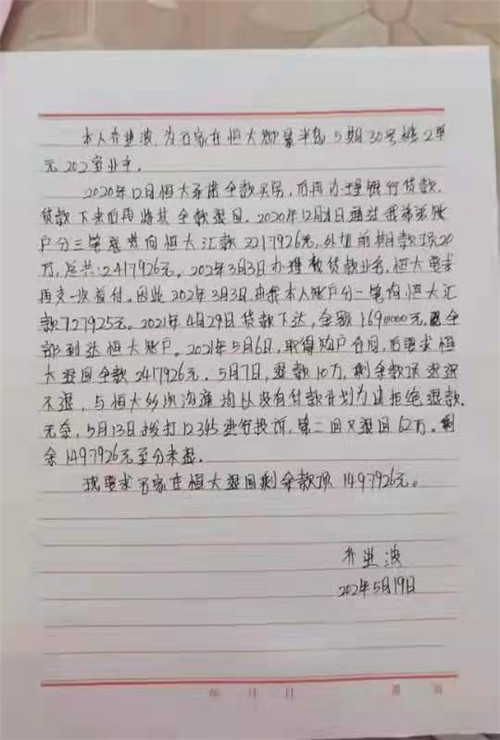 本人齐进波,为石家庄恒大御景半岛5期30号楼2单
元202室业主。
2020年12月恒大承诺全款买房,后再办理银行贷款,
贷款下来后再将其全款退回。2020年12月 日通过我
户分三笔 共向恒大汇款2217926元,外加前期款项20
万,总共:2417926元。2021年3月3日办理 贷款业务,恒大要求
再交一次首付。因此2021年3月3日,由我本人账户分一笔向恒大汇
款727925元。2021年4月29日贷款下达,金额1690000元 全
部到达恒大账户。2021年5月6日,取得购户合同,后要求恒
大退回全款2417926元。5月7日,退款10万,剩余款项迟迟
不退,与恒大多次沟通均以没有付款计划为 拒绝退款
无奈,5月13日拨打12345进行投诉,第二回又退回62万。剩
余1497926元至今未退。
我要求石家庄恒大退回剩余款项1497926元。
齐进波
2021年5月19日
年 月 日 第 页